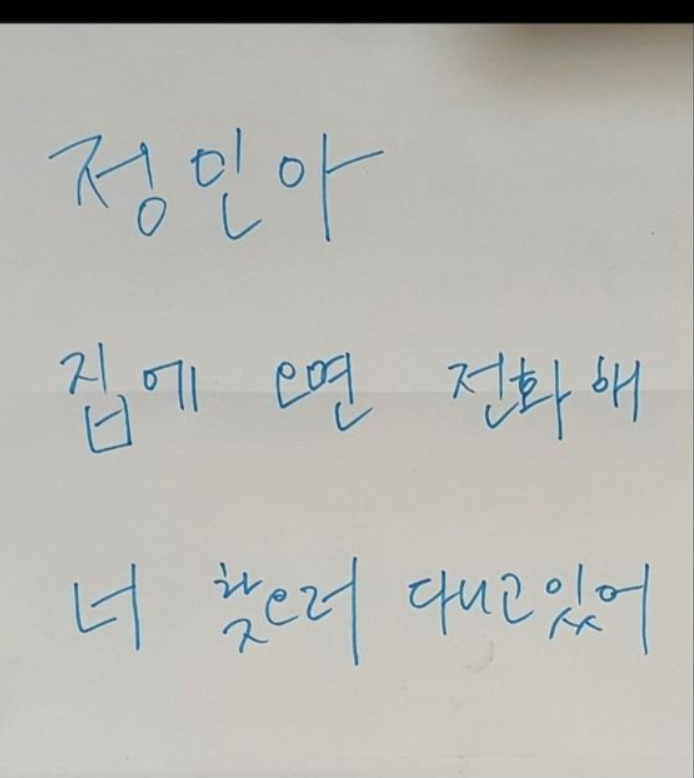 정인아
집에 오면 전화해
너 찾으러 다니고있어